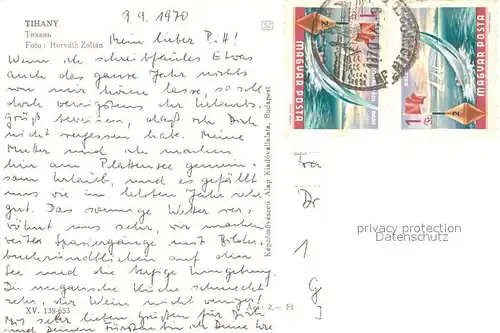 TIHANY
Тихань
Foto : Horváth Zoltán
9.9.1970
Mein lieber Pitt!
Wenn ich schreibfaules Etwas
auch das ganze Jahr nichts
von mir hören lasse, so soll
doch wenigstens der Urlaubs-
gruß beweisen, daß ich Dich
nicht vergessen habe. Meine
Mutter und ich machen
hier am Plattensee gemein-
sam Urlaub, und es gefällt
uns wie im letzten Jahr sehr
gut. Das sonnige Wetter ver-
wöhnt uns sehr, wir machen
weite Spaziergänge mit Bilder-
buchsichten auf den
See und die Umgebung
Die ungarische Küche schmeckt
sehr, der Wein nicht weniger!
Mit sehr lieben Grüßen für Dich
und Deinen bin ich Deine
XV. 138-653
Ára: 2,— Ft
Képzőművészeti Alap Kiadóvállalata, Budapest
MAGYAR POSTA
1
MAGYAR POSTA
1
Dr
privacy protection
Datenschutz